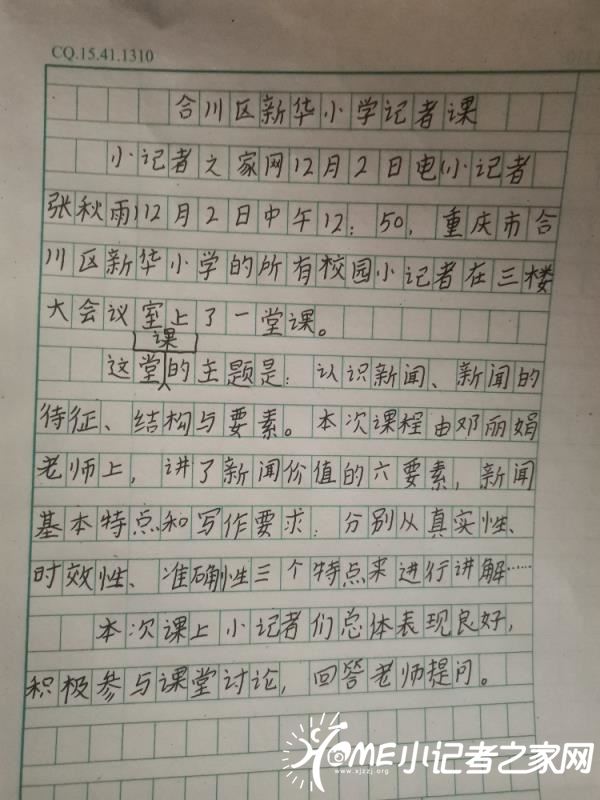 CQ.15.41.1310
合川区新华小学记者课
小记者之家网12月2日电(小记者
张秋雨)12月2日中午12:50,重庆市合
川区新华小学的所有校园小记者在三楼
大会议室上了一堂课。
课
这堂的主题是:认识新闻、新闻的
待征、结构与要素。本次课程由邓丽娟
老师上,讲了新闻价值的六要素,新闻
基本特点和写作要求:分别从真实性、
时效性、准确性三个特点来进行讲解……
本次课上小记者们总体表现良好,
积极参与课堂讨论,回答老师提问。
HOME小记者之家网
www.xjzzj.org